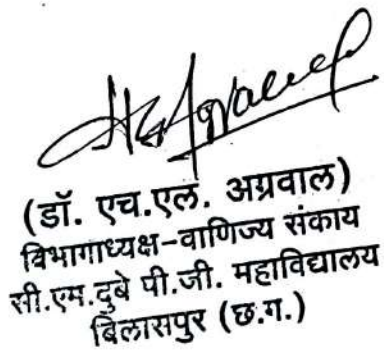 HL Agrawal
(डॉ. एच.एल. अग्रवाल)
विभागाध्यक्ष-वाणिज्य संकाय
सी.एम.दुबे पी.जी. महाविद्यालय
बिलासपुर (छ.ग.)